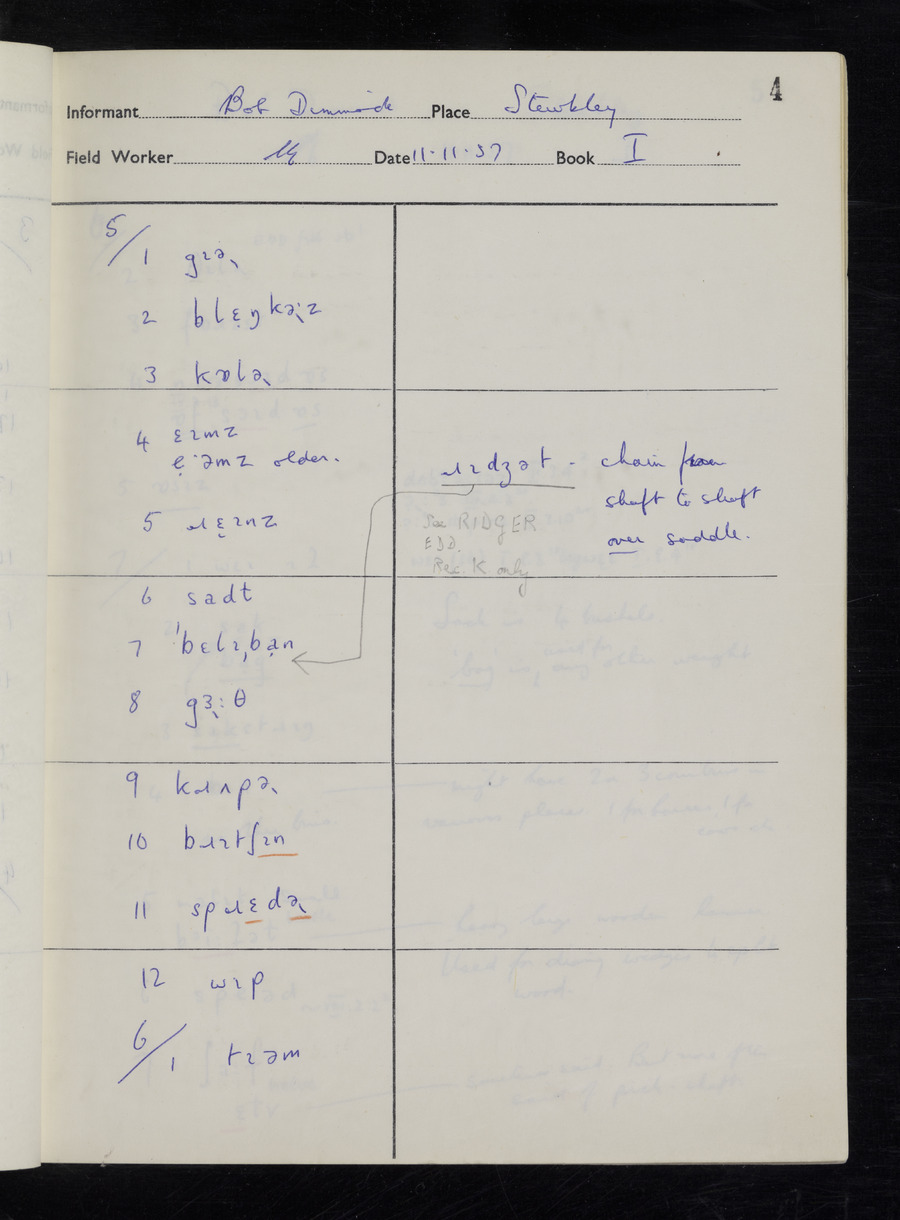 4
Informant Bob Dimmock Place Stewkley
Field Worker Date 11·11·57 Book I
5/1 gɪə˞
2 blɛ̣ŋkə˞:z
3 kɒlə˞
4 ɛɪmz
ẹ·əmz older.
5 ɹɛ̣ɪnz
ɹɪdʒət - chain from
shaft to shaft
over saddle.
See RIDGER
EDD.
Rec. K only
6 sadt
7 ˈbɛlɪˌbạn
8 gɜ˞:θ
9 kɹʌpə˞
10 bɹɪtʃɪn
11 spɹɛdə˞
12 wɪp
6/1 tɪəm